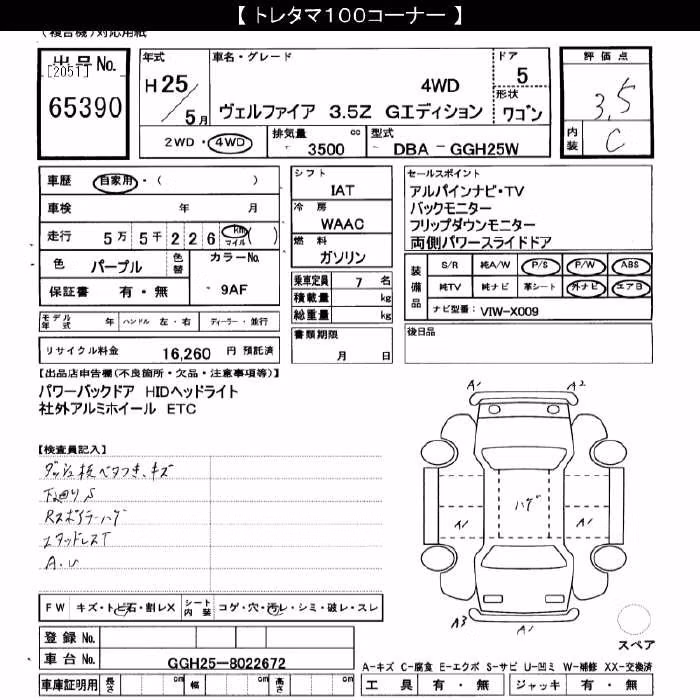 【 トレタマ100コーナー 】
(複合機)対応用紙
出品No.
[2051]
65390
年式
H 25/5月
車名・グレード
4WD
ヴェルファイア 3.5Z Gエディション
ドア
5
形状
ワゴン
評価点
3.5
内装
C
2WD・4WD
排気量 cc
3500
型式
DBA - GGH25W
車歴 自家用・( )
車検 年 月
走行 5万 5千 2 2 6 km マイル ( )
色 パープル 色替
カラーNo.
9AF
保証書 有・無
モデル年式 年 ハンドル 左・右 ディーラー・並行
リサイクル料金 16,260 円 預託済
シフト
IAT
冷房
WAAC
燃料
ガソリン
乗車定員 7 名
積載量 kg
総重量 kg
書類期限
月 日
セールスポイント
アルパインナビ・TV
バックモニター
フリップダウンモニター
両側パワースライドドア
装備品
S/R 純A/W P/S P/W ABS
純TV 純ナビ 革シート 外ナビ エアB
ナビ型番: VIW-X009
後日品
【出品店申告欄(不良箇所・欠品・注意事項等)】
パワーバックドア HIDヘッドライト
社外アルミホイール ETC
【検査員記入】
ダッシュ板ベタつき、キズ
下廻りS
Rスポイラーハゲ
スタッドレスT
A.U
A1 A2
ハゲ
A1 A1
A3 A1
スペア
FW キズ・トビ石・割レX シート内装 コゲ・穴・汚レ・シミ・破レ・スレ
登録No.
車台No. GGH25-8022672
車庫証明用 長さ cm 幅 cm 高さ cm
A-キズ C-腐食 E-エクボ S-サビ U-凹ミ W-補修 XX-交換済
工具 有・無 ジャッキ 有・無